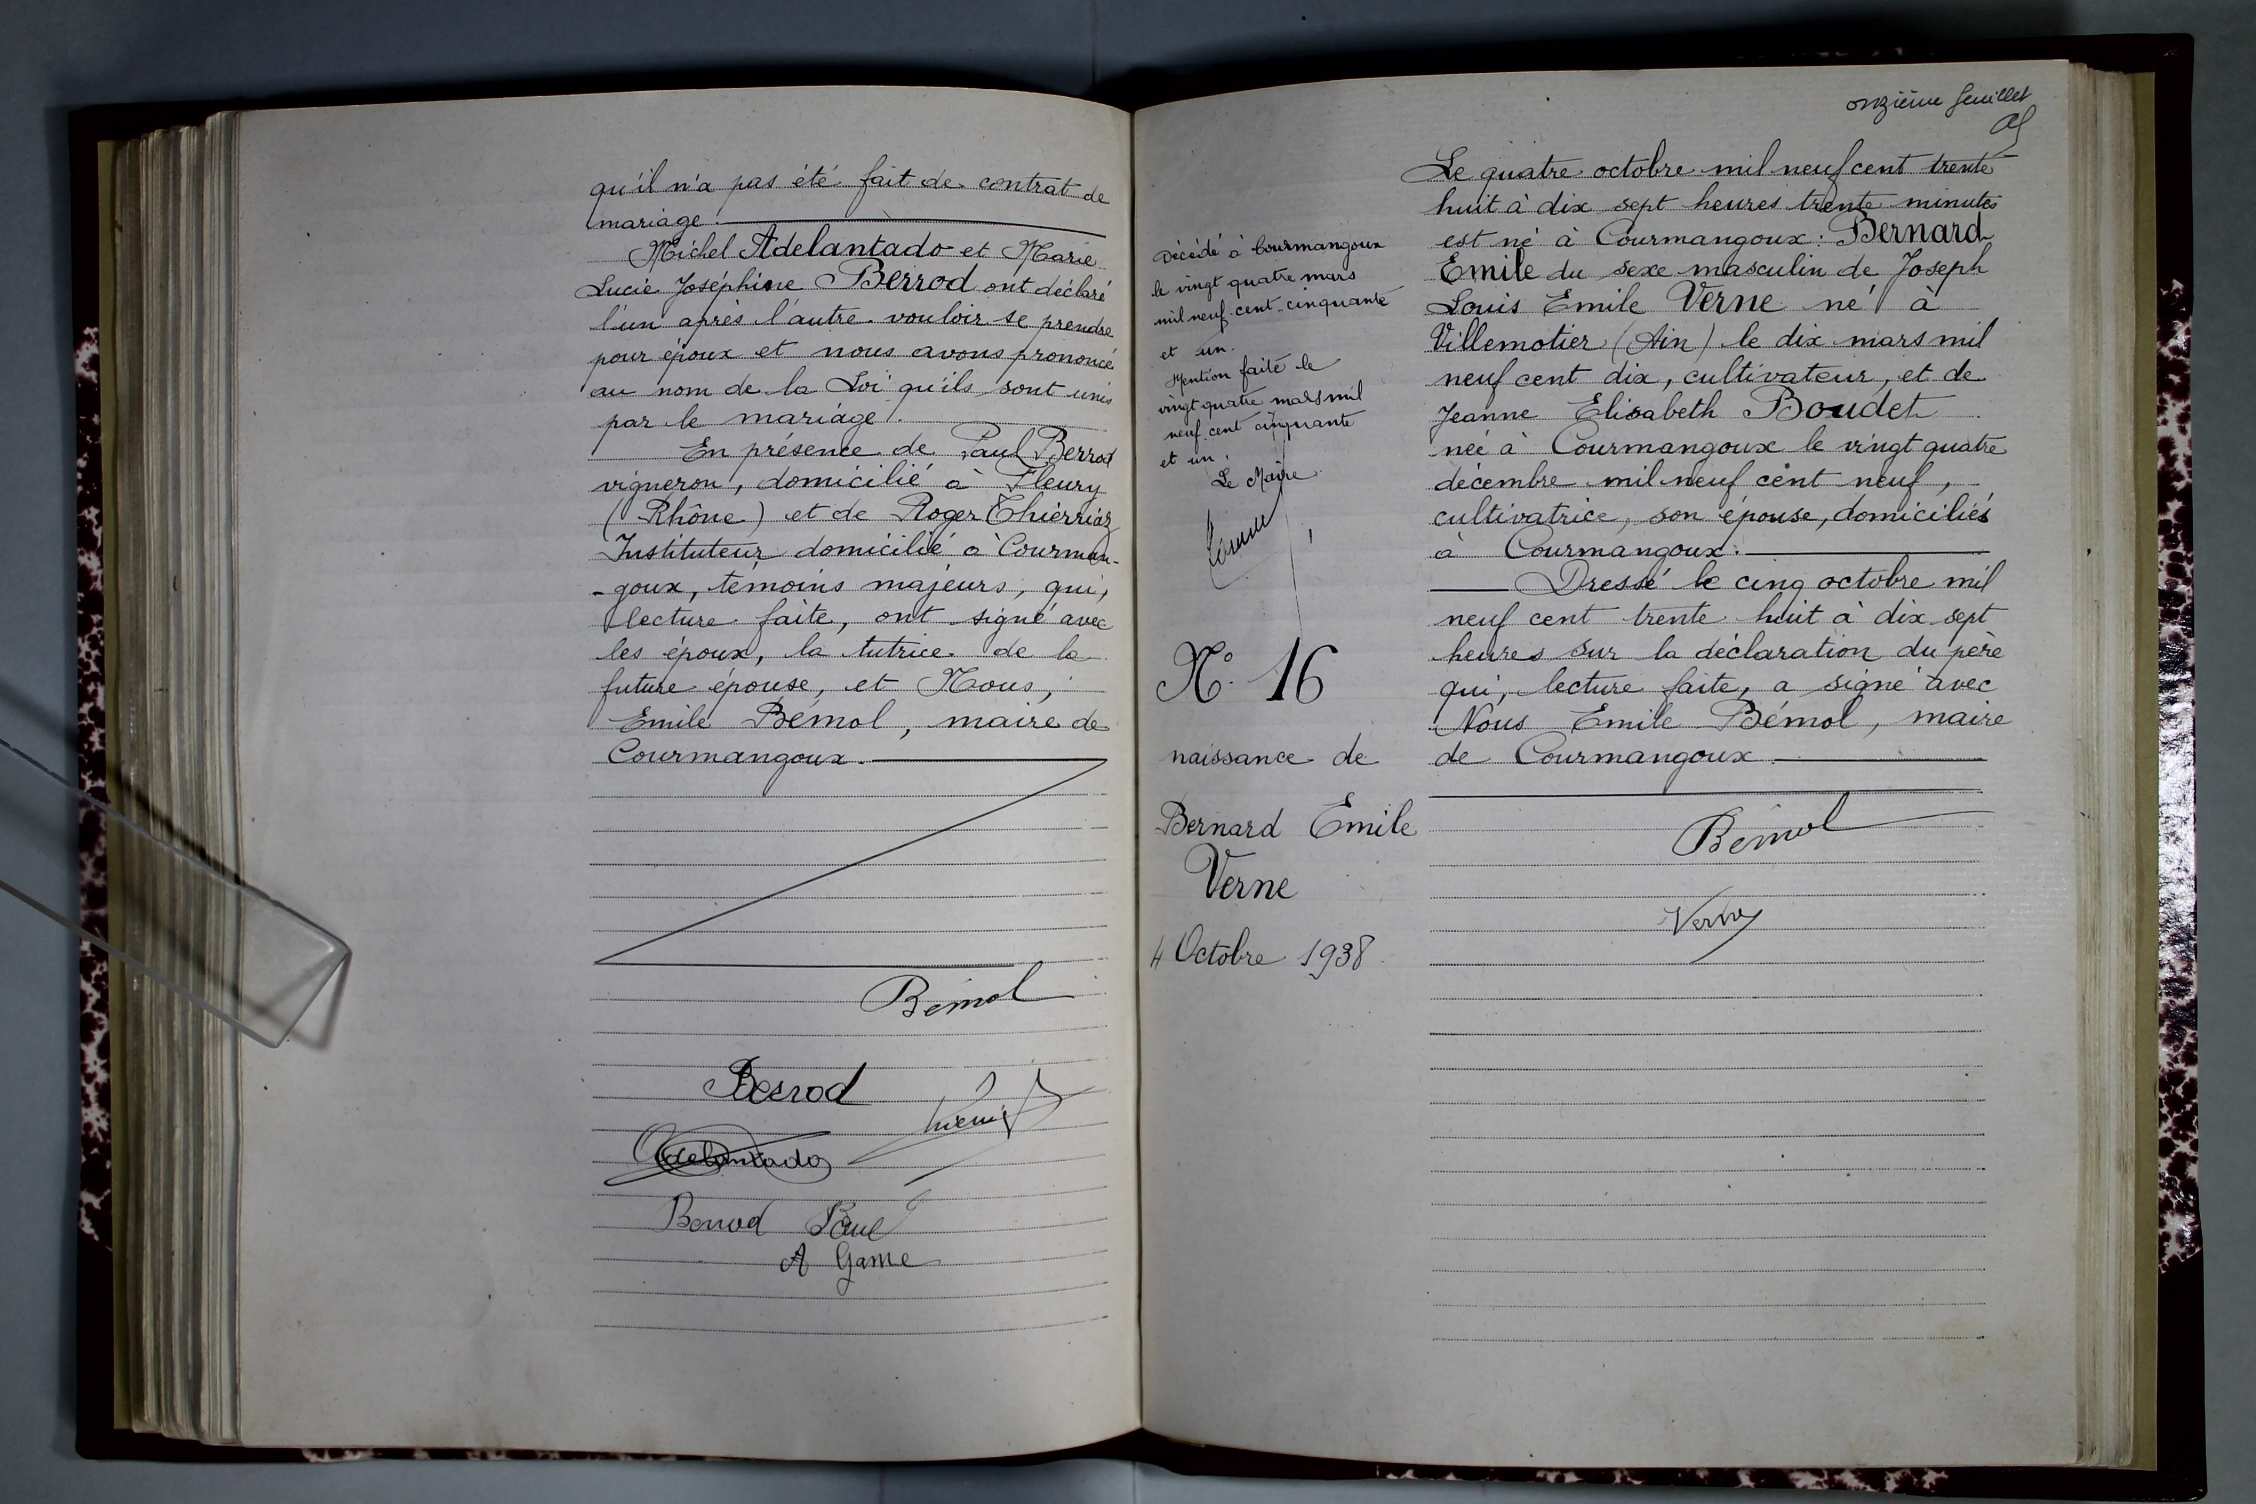 qu'il n'a pas été fait de contrat de
mariage.
Michel Adelantado et Marie
Lucie Joséphine Berrod ont déclaré
l'un après l'autre vouloir se prendre
pour époux et nous avons prononcé
au nom de la Loi qu'ils sont unis
par le mariage.
En présence de Paul Berrod
vigneron, domicilié à Fleury
(Rhône) et de Roger Thierriaz
Instituteur domicilié à Courman-
-goux, témoins majeurs, qui,
lecture faite, ont signé avec
les époux, la tutrice de la
future épouse, et Nous,
Emile Bémol, maire de
Courmangoux.
Bémol
Berrod
Adelantado
Berrod Paul
A Game
onzième feuillet
Décédé à Courmangoux
le vingt quatre mars
mil neuf cent cinquante
et un.
Mention faite le
vingt quatre mars mil
neuf cent cinquante
et un.
Le Maire
No. 16
naissance de
Bernard Emile
Verne
4 Octobre 1938
Le quatre octobre mil neuf cent trente
huit à dix sept heures trente minutes
est né à Courmangoux: Bernard
Emile du sexe masculin de Joseph
Louis Emile Verne né à
Villemotier (Ain) le dix mars mil
neuf cent dix, cultivateur, et de
Jeanne Elisabeth Boudet
née à Courmangoux le vingt quatre
décembre mil neuf cent neuf,
cultivatrice, son épouse, domiciliés
à Courmangoux.
Dressé le cinq octobre mil
neuf cent trente huit à dix sept
heures sur la déclaration du père
qui, lecture faite, a signé avec
Nous Emile Bémol, maire
de Courmangoux
Bémol
Verne